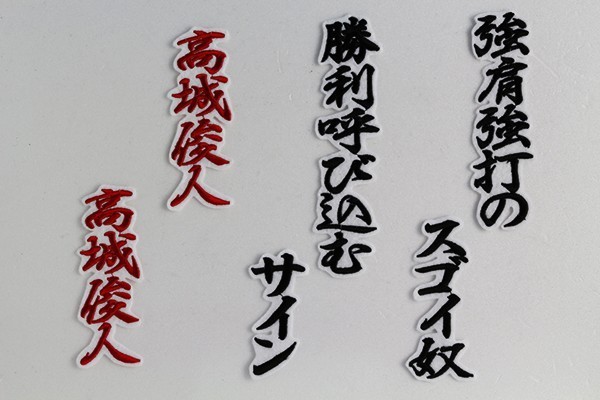 強肩強打の
スゴイ奴
勝利呼び込む
サイン
高城俊人
高城俊人